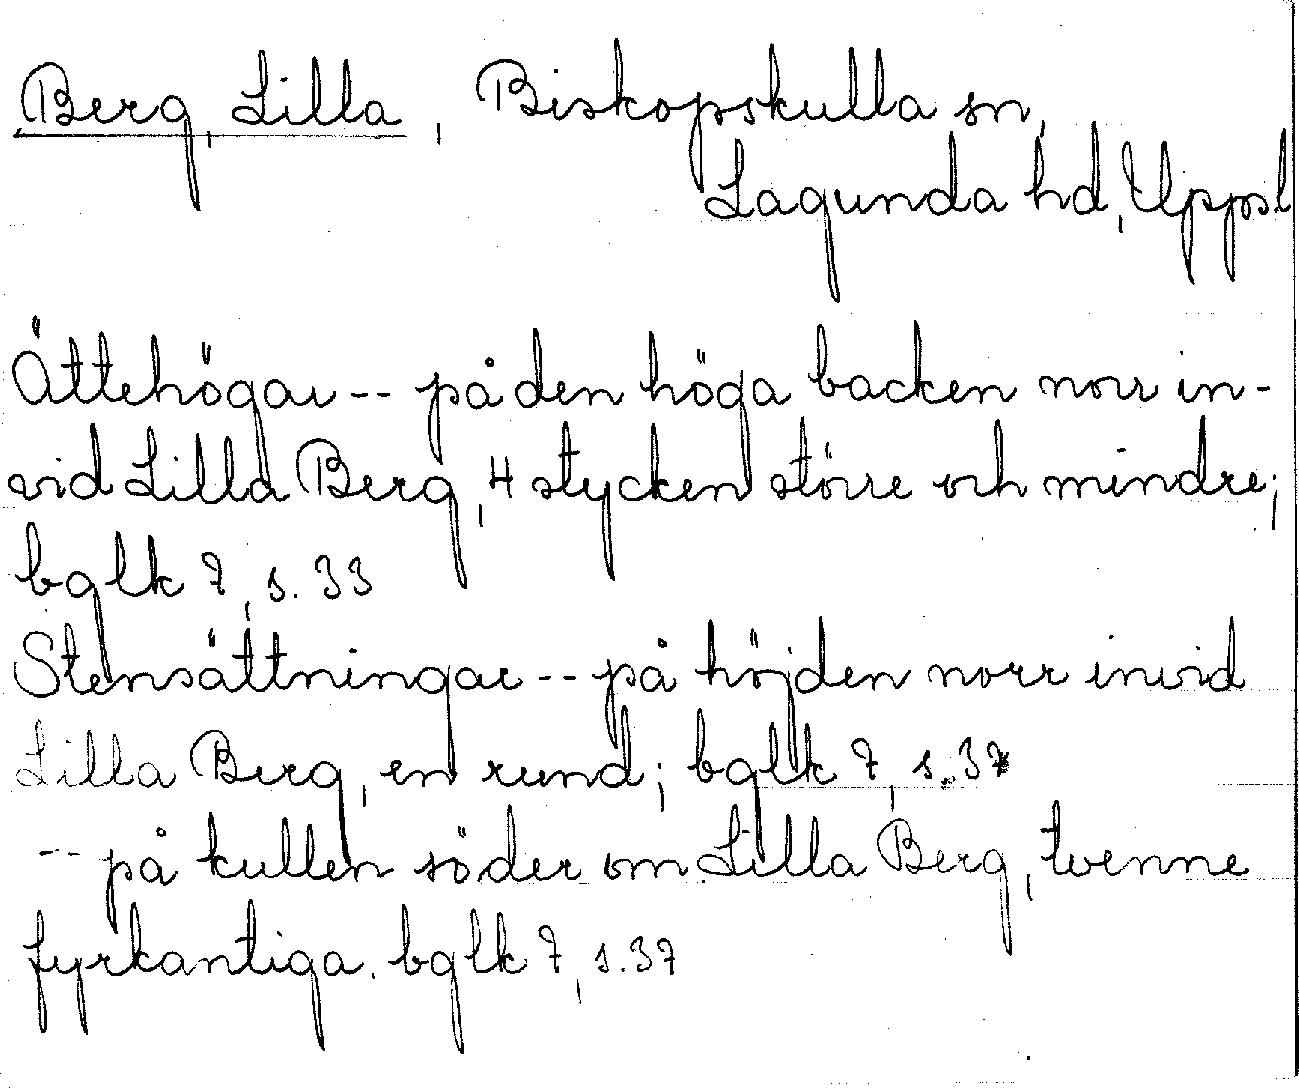 Berg, Lilla, Biskopskulla sn,
Lagunda hd, Uppsl
Ättehögar -- på den höga backen norr in-
vid Lilla Berg, 4 stycken större och mindre;
bglk 7, s. 33
Stensättningar -- på höjden norr invid
Lilla Berg, en rund; bglk 7, s. 37
-- på kullen söder om Lilla Berg, tvenne
fyrkantiga. bglk 7, s. 37